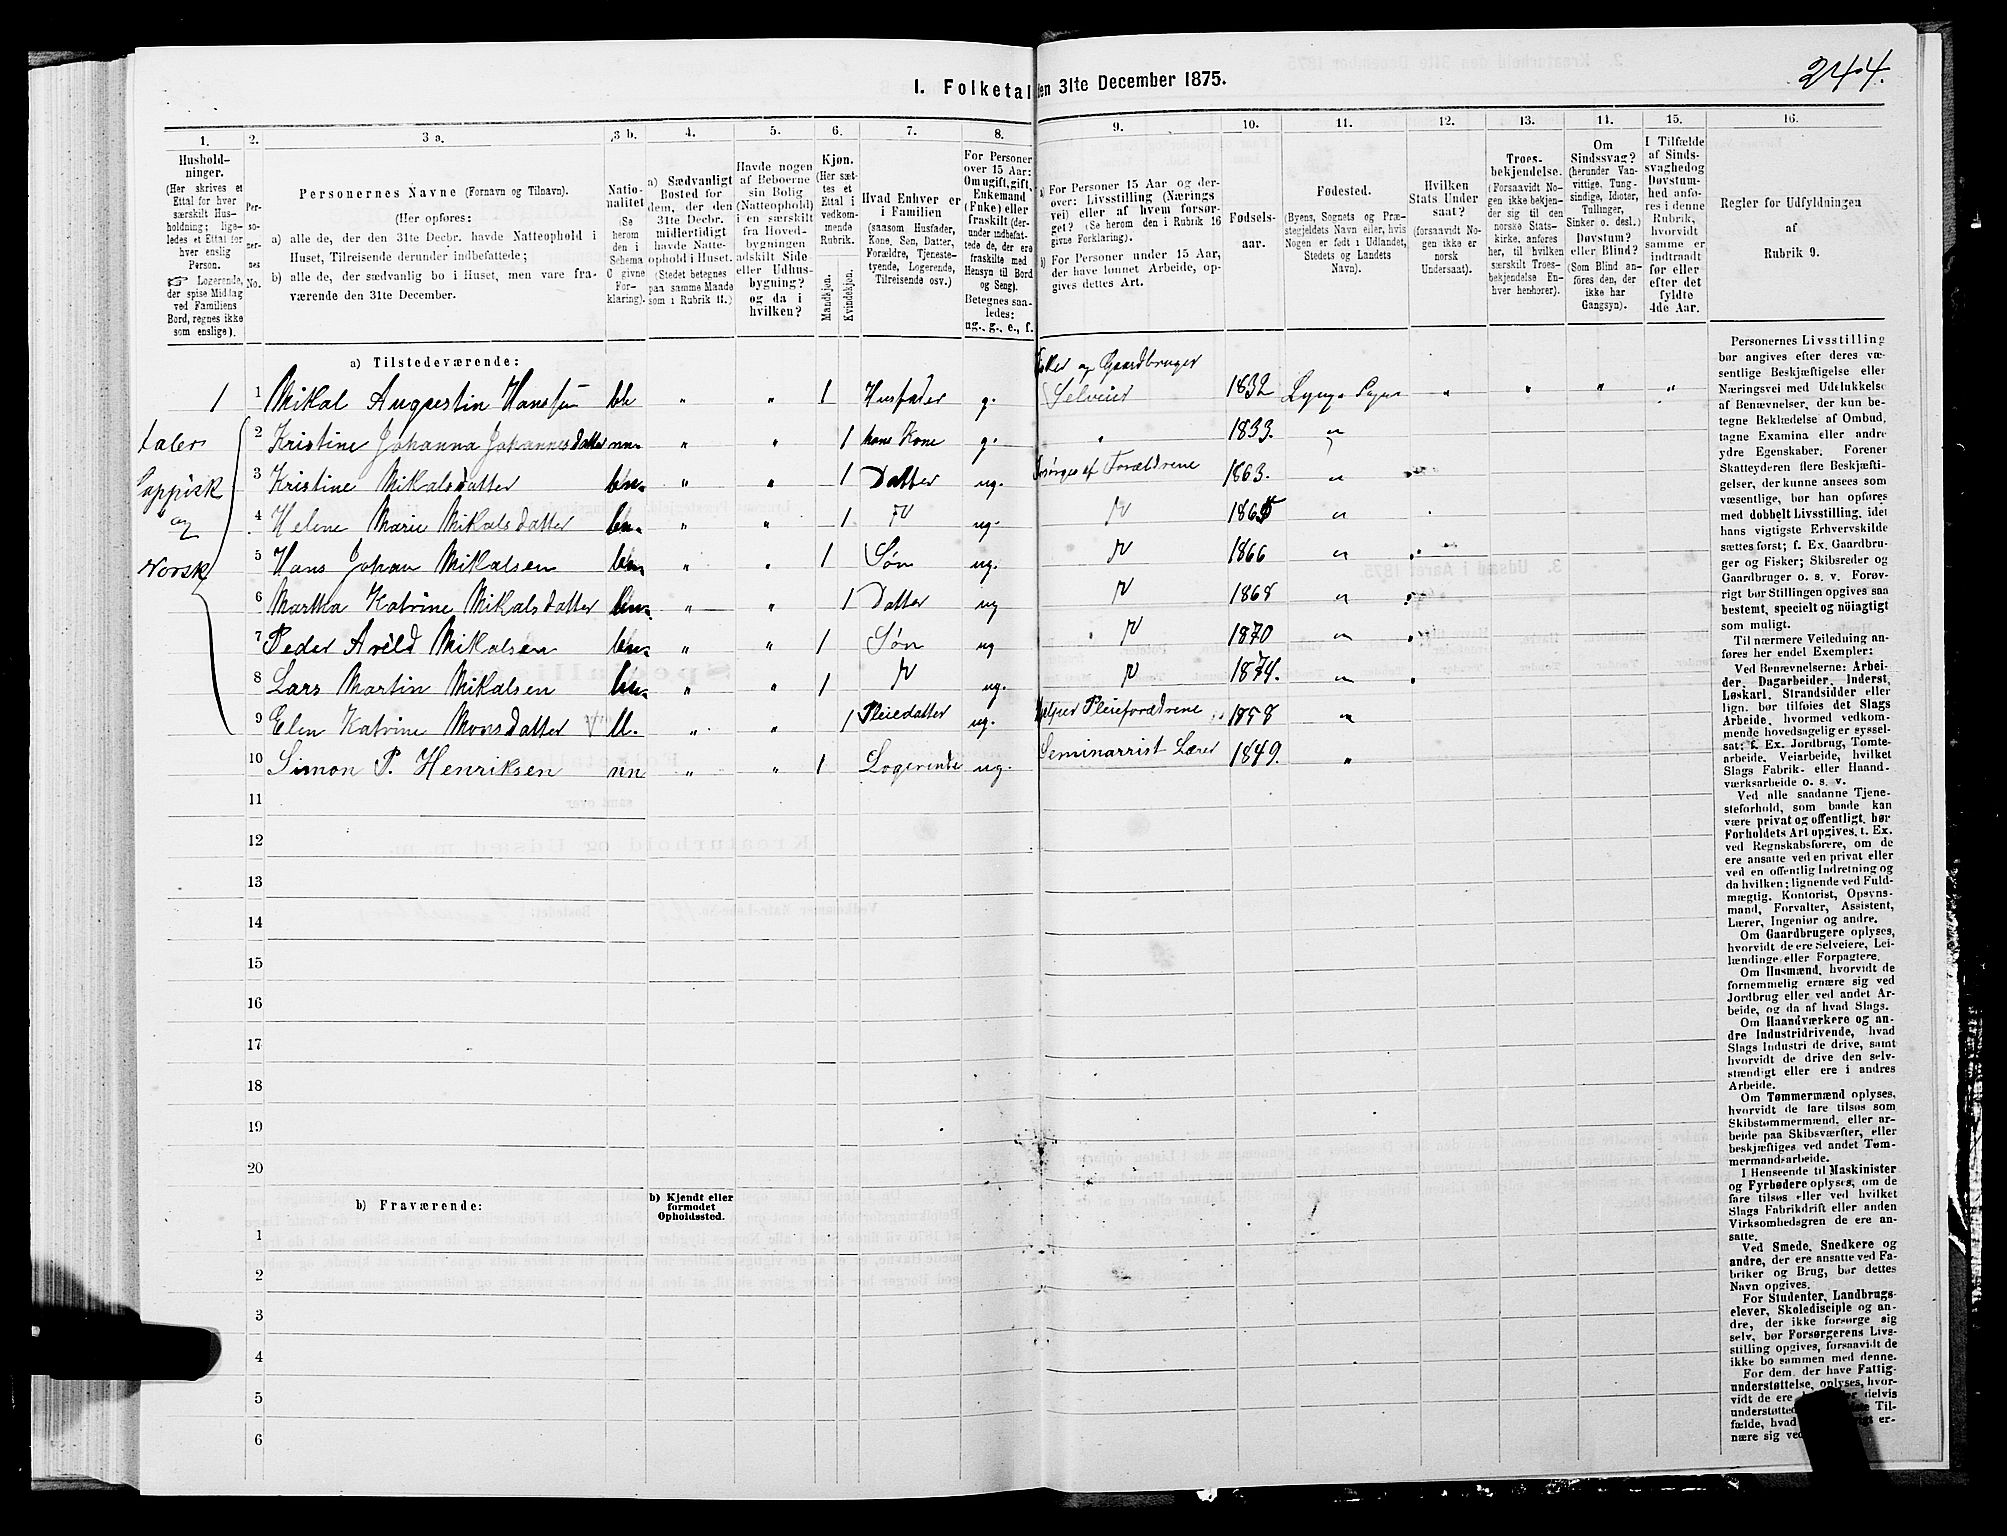 244.
I. Folketal den 31te December 1875.
1. 2. 3 a. 3 b. 4. 5. 6. 7. 8. 9. 10. 11. 12. 13. 14. 15. 16.
Hushold-
ninger.
(Her skrives et
Ettal for hver
særskilt Hus-
holdning; lige-
ledes et Ettal for
hver enslig
Person.
Logerende,
der spise Middag
ved Familiens
Bord, regnes ikke
som enslige).
Per-
so-
ner-
nes
No.
Personernes Navne (Fornavn og Tilnavn).
(Her opføres:
a) alle de, der den 31te Decbr. havde Natteophold i
Huset, Tilreisende derunder indbefattede;
b) alle de, der sædvanlig bo i Huset, men vare fra-
værende den 31te December.
Natio-
nalitet
(Se
herom
den i
Schema
C givne
For-
klaring).
a) Sædvanligt
Bosted for
dem, der den
31te Decbr.
midlertidigt
havde Natte-
ophold i Huset.
(Stedet betegnes
paa samme Maade
som i Rubrik 11.)
Havde nogen
af Beboerne
sin Bolig
(Natteophold)
i en særskilt
fra Hoved-
bygningen
adskilt Side
eller Udhus-
bygning?
og da i
hvilken?
Kjøn.
(Her sæt-
tes et
Ettal i
vedkom-
mende
Rubrik.
Mandkjøn.
Kvindekjøn.
Hvad Enhver er
i Familien
(saasom Husfader,
Kone, Søn, Datter,
Forældre, Tjeneste-
tyende, Logerende,
Tilreisende osv.)
For Personer
over 15 Aar:
Om ugift, gift,
Enkemand
(Enke) eller
fraskilt (der-
under indbefat-
tede de, der ere
fraskilte med
Hensyn til Bord
og Seng).
Betegnes saa-
ledes:
ug., g., e., f.
a) For Personer 15 Aar og der-
over: Livsstilling (Nærings
vei) eller af hvem forsør-
get? (Se herom den i Rubrik 16
givne Forklaring).
b) For Personer under 15 Aar,
der have lønnet Arbeide, op-
gives dettes Art.
Fødsels-
aar.
Fødested.
(Byens, Sognets og Præ-
stegjeldets Navn eller, hvis
Nogen er født i Udlandet,
Stedets og Landets
Navn).
Hvilken
Stats Under
saat?
(forsaavidt No-
gen ikke er
norsk
Undersaat).
Troes-
bekjendelse.
(Forsaavidt No-
gen ikke bekjen-
der sig til den
norske Stats-
kirke, anføres
her, til hvilken
særskilt Troes-
bekjendelse En-
hver henhører).
Om
Sindssvag?
(herunder Van-
vittige, Tung-
sindige, Idioter,
Tullinger,
Sinker o. desl.)
Døvstum?
eller Blind?
(Som Blind an-
føres den, der
ikke har
Gangsyn).
I Tilfælde
af Sinds-
svaghed og
Døvstum-
hed anfø-
res i denne
Rubrik,
hvorvidt
samme er
indtraadt
før eller
efter det
fyldte
4de Aar.
Regler for Udfyldningen
af
Rubrik 9.
a) Tilstedeværende:
1 1 Mikal Augustin Hansen bl " " 1 Husfader g. Fisker og Gaardbruger Selveier 1832 Lyngs Sogn " " " "
taler Lappisk og Norsk
2 Kristine Johanna Johannesdatter nn. " " 1 hans Kone g. " 1833. "
3 Kristine Mikalsdatter bn. " " 1 Datter ug. Forsørges af Forældrene 1863. "
4 Helene Marie Mikalsdatter bn. " " 1 " ug. " 1865 "
5 Hans Johan Mikalsen bn. " " 1 Søn ug. " 1866 "
6 Martha Katrine Mikalsdatter bn. " " 1 Datter ug " 1868 "
7 Peder Arild Mikalsen bn. " " 1 Søn ug " 1870 "
8 Lars Martin Mikalsen bn. " " 1 " ug. " 1874. "
9 Elen Katrine Monsdatter ll. " " 1 Pleiedatter ug. Hjelper Pleieforældrene 1858 "
10 Simon P. Henriksen nn " " 1 Logerende ug. Seminarrist Lærer 1849. "
11
12
13
14
15
16
17
18
19
20
b) Fraværende:
b) Kjendt eller
formodet
Opholdssted.
1
2
3
4
5
6
Personernes Livsstilling
bør angives efter deres væ-
sentlige Beskjæftigelse eller
Næringsvei med Udelukkelse
af Benævnelser, der kun be-
tegne Beklædelse af Ombud,
tagne Examina eller andre
ydre Egenskaber. Forener
Skatteyderen flere Beskjæfti-
gelser, der kunne ansees som
væsentlige, bør han opføres
med dobbelt Livsstilling, idet
hans vigtigste Erhvervskilde
sættes først; f. Ex. Gaardbru-
ger og Fisker; Skibsreder og
Gaardbruger o. s. v. Forøv-
rigt bør Stillingen opgives saa
bestemt, specielt og nöiagtigt
som muligt.
Til nærmere Veiledning an-
føres her endel Exempler:
Ved Benævnelserne: Arbei-
der, Dagarbeider, Inderst,
Løskarl, Strandsidder eller
lign. bør tilføies det Slags
Arbeide, hvormed vedkom-
mende hovedsagelig er syssel-
sat; f. Ex. Jordbrug, Tomte-
arbeide, Veiarbeide, hvilket
Slags Fabrik- eller Haand-
værksarbeide o. s. v.
Ved alle saadanne Tjene-
steforhold, som baade kan
være privat og offentligt, bør
Forholdets Art opgives, t. Ex.
ved Regnskabsførere, om de
ere ansatte ved en privat eller
ved en offentlig Indretning og
da hvilken; lignende ved Fuld-
mægtig, Kontorist, Opsyns-
mand, Forvalter, Assistent,
Lærer, Ingeniør og andre.
Om Gaardbrugere oplyses,
hvorvidt de ere Selveiere, Lei-
lændinge eller Forpagtere.
Om Husmænd, hvorvidt de
fornemmelig ernære sig ved
Jordbrug eller ved andet Ar-
beide, og da af hvad Slags.
Om Haandværkere og an-
dre Industridrivende, hvad
Slags Industri de drive, samt
hvorvidt de drive den selv-
stændigt eller ere i andres
Arbeide.
Om Tømmermænd oplyses,
hvorvidt de fare tilsøs som
Skibstømmermænd, eller ar-
beide paa Skibsværfter, eller
beskjæftiges ved andet Tøm-
mermandsarbeide.
I Henseende til Maskinister
og Fyrbødere oplyses, om de
fare tilsøs eller ved hvilket
Slags Fabrikdrift eller anden
Virksomhedsgren de ere an-
satte.
Ved Smede, Snedkere og
andre, der ere ansatte ved Fa-
briker og Brug, bør dettes
Navn opgives.
For Studenter, Landbrugs-
elever, Skoledisciple og an-
dre, der ikke forsørge sig
selv, bør Forsørgerens Livs-
stilling opgives, forsaavidt de
ikke bo sammen med denne.
For dem, der have Fattig-
understøttelse, oplyses, hvor-
vidt de ere delvis
understøttede Til-
fælde, hvad er-
nære sig ved